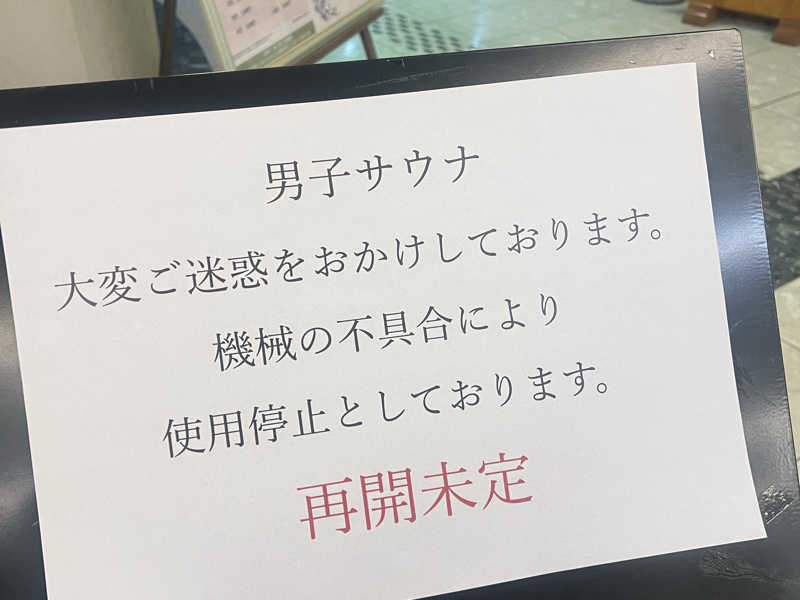 男子サウナ
大変ご迷惑をおかけしております。
機械の不具合により
使用停止としております。
再開未定